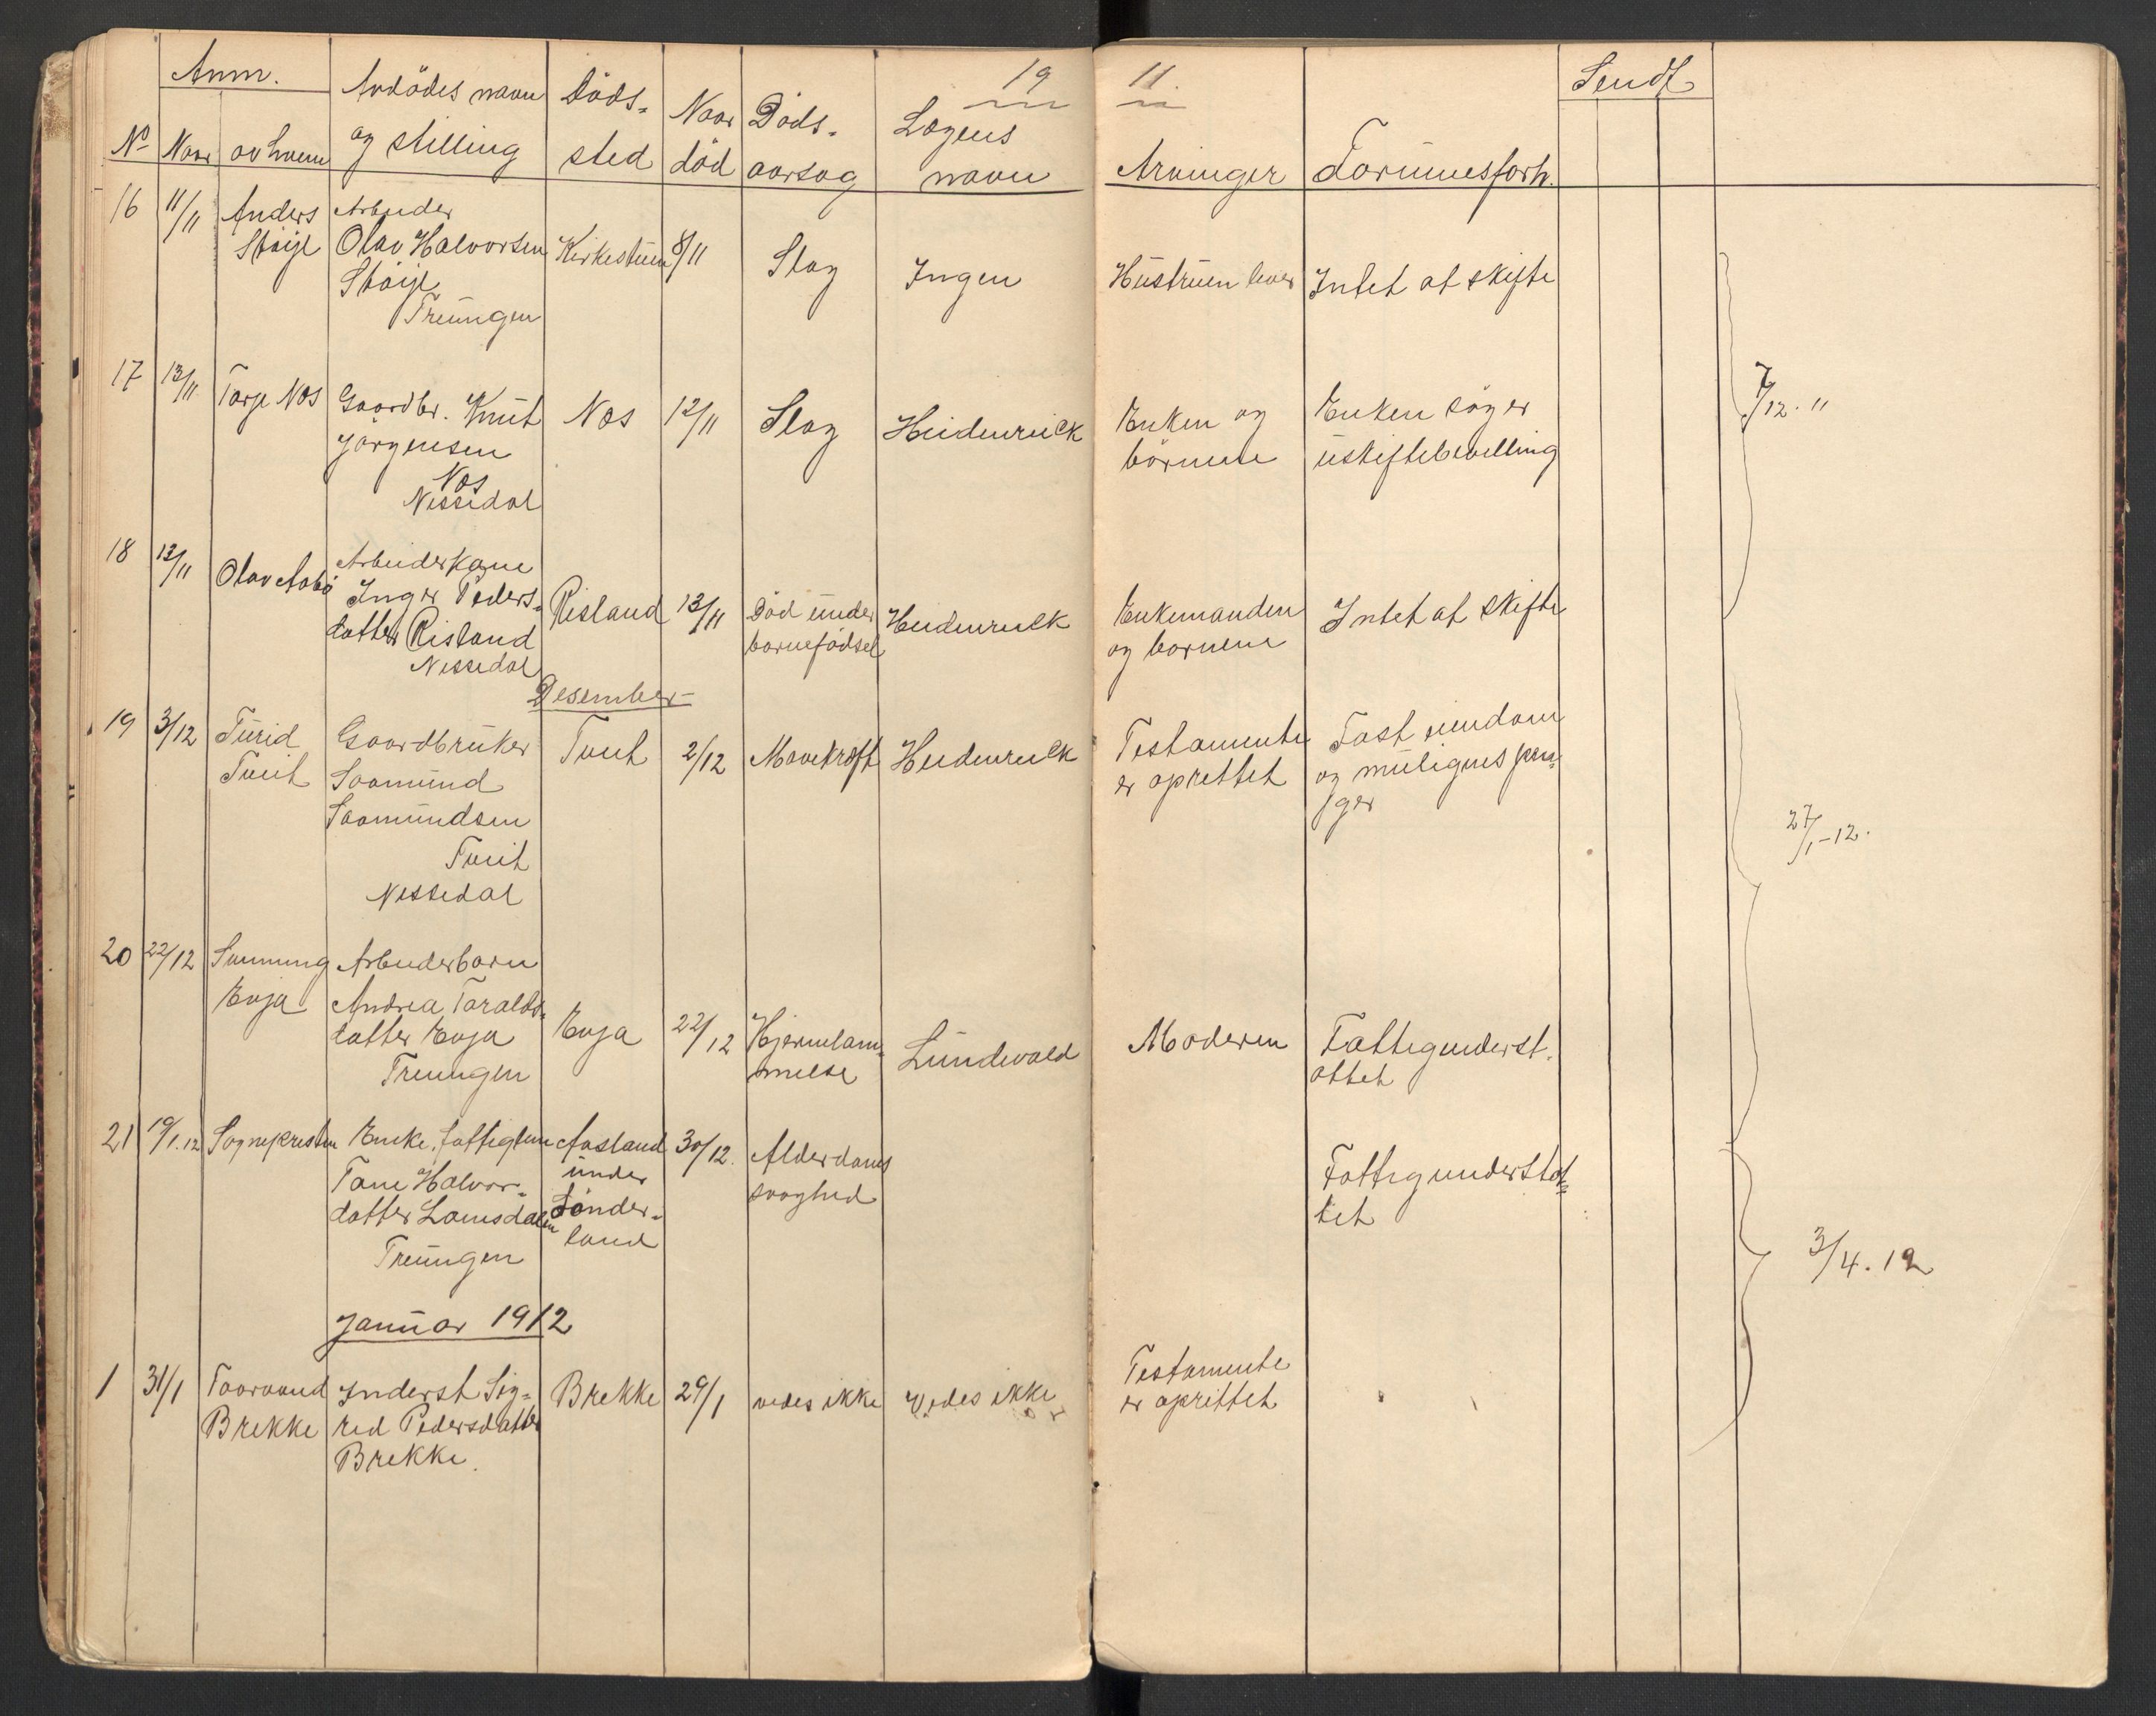 19 11.
Anm.
Avdödes navn
og stilling
Döds-
sted
Naar
död
Döds-
aarsag
Lægens
navn
Arvinger
Formuesforh.
Sendt
No Naar av hvem
16 11/11 Anders
Stöyl
Arbeider
Olav Halvorsen
Stöyl
Treungen
Kirkestuen 8/11 Slag Ingen Hustruen lever Intet at skifte
17 13/11 Torje Næs
Gaardbr. Knut
Jörgensen
Næs
Nissedal
Næs 12/11 Slag Heidenreick
Enken og
börnene
Enken söger
uskiftebevilling
7/12. 11
18 13/11 Olav Aabö
Arbeiderkone
Inger Peders-
datter Risland
Nissedal
Risland 13/11
Död under
barnefödsel
Heidenreick
Enkemanden
og børnene
Intet at skifte
Desember
19 3/12 Turid
Tveit
Gaardbruker
Saamund
Saamundsen
Tveit
Nissedal
Tveit 2/12 Mavekræft Heidenreick
Testamente
er oprettet
Fast eiendom
og muligens pen-
ger
27/1-12.
20 22/12
Evja
Arbeiderbarn
Andrea Toralds-
datter Evja
Treungen
Evja 22/12
Hjernelam-
melse
Lundevald
Moderen
Fattigunderst.
øttet
21 19/1.12 Sognepresten
Enke, fattiglem
Tone Halvor-
datter Lomsdalen
Treungen
Aasland
under
Sönder-
land
30/12.
Alderdoms
svaghed
Fattigunderstøt-
tet
3/4. 12
Januar 1912
1 31/1 Taaraand
Brekke
Inderst Sig-
red Pedersdatter
Brekke.
Brekke 29/1 vides ikke Vides ikke
Testamente
er oprettet